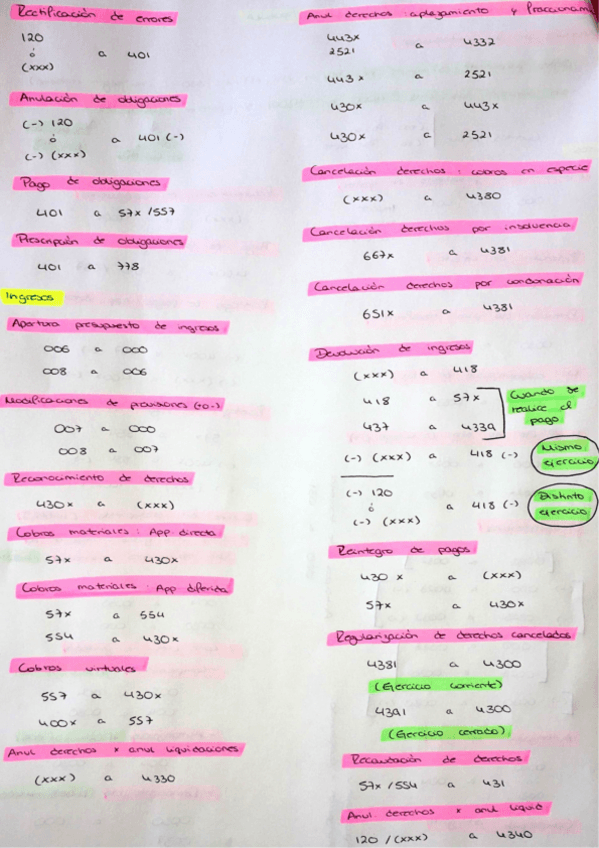 Rectificación de errores
120
ó a 401
(xxx)
Anulación de obligaciones
(-) 120
ó a 401 (-)
(-) (xxx)
Pago de obligaciones
401 a 57x /557
Prescripción de obligaciones
401 a 778
Ingresos
Apertura presupuesto de ingresos
006 a 000
008 a 006
Modificaciones de previsiones (+o-)
007 a 000
008 a 007
Reconocimiento de derechos
430x a (xxx)
Cobros materiales: App directa
57x a 430x
Cobros materiales: App diferida
57x a 554
554 a 430x
Cobros virtuales
557 a 430x
400x a 557
Anul derechos x anul liquidaciones
(xxx) a 4330
Anul derechos: aplazamiento y fraccionam
443x a 4332
2521
443x a 2521
430x a 443x
430x a 2521
Cancelación derechos: cobros en especie
(xxx) a 4380
Cancelación derechos por insolvencia
667x a 4381
Cancelación derechos por condonación
651x a 4381
Devolución de ingresos
(xxx) a 418
418 a 57x
437 a 4339
Cuando se
realice el
pago
(-) (xxx) a 418 (-)
Mismo
ejercicio
(-) 120
ó a 418 (-)
(-) (xxx)
Distinto
ejercicio
Reintegro de pagos
430 x a (xxx)
57x a 430x
Regularización de derechos cancelados
4381 a 4300
(Ejercicio corriente)
4391 a 4300
(Ejercicio cerrado)
Recaudación de derechos
57x /554 a 431
Anul. derechos x anul liquid
120 /(xxx) a 4340